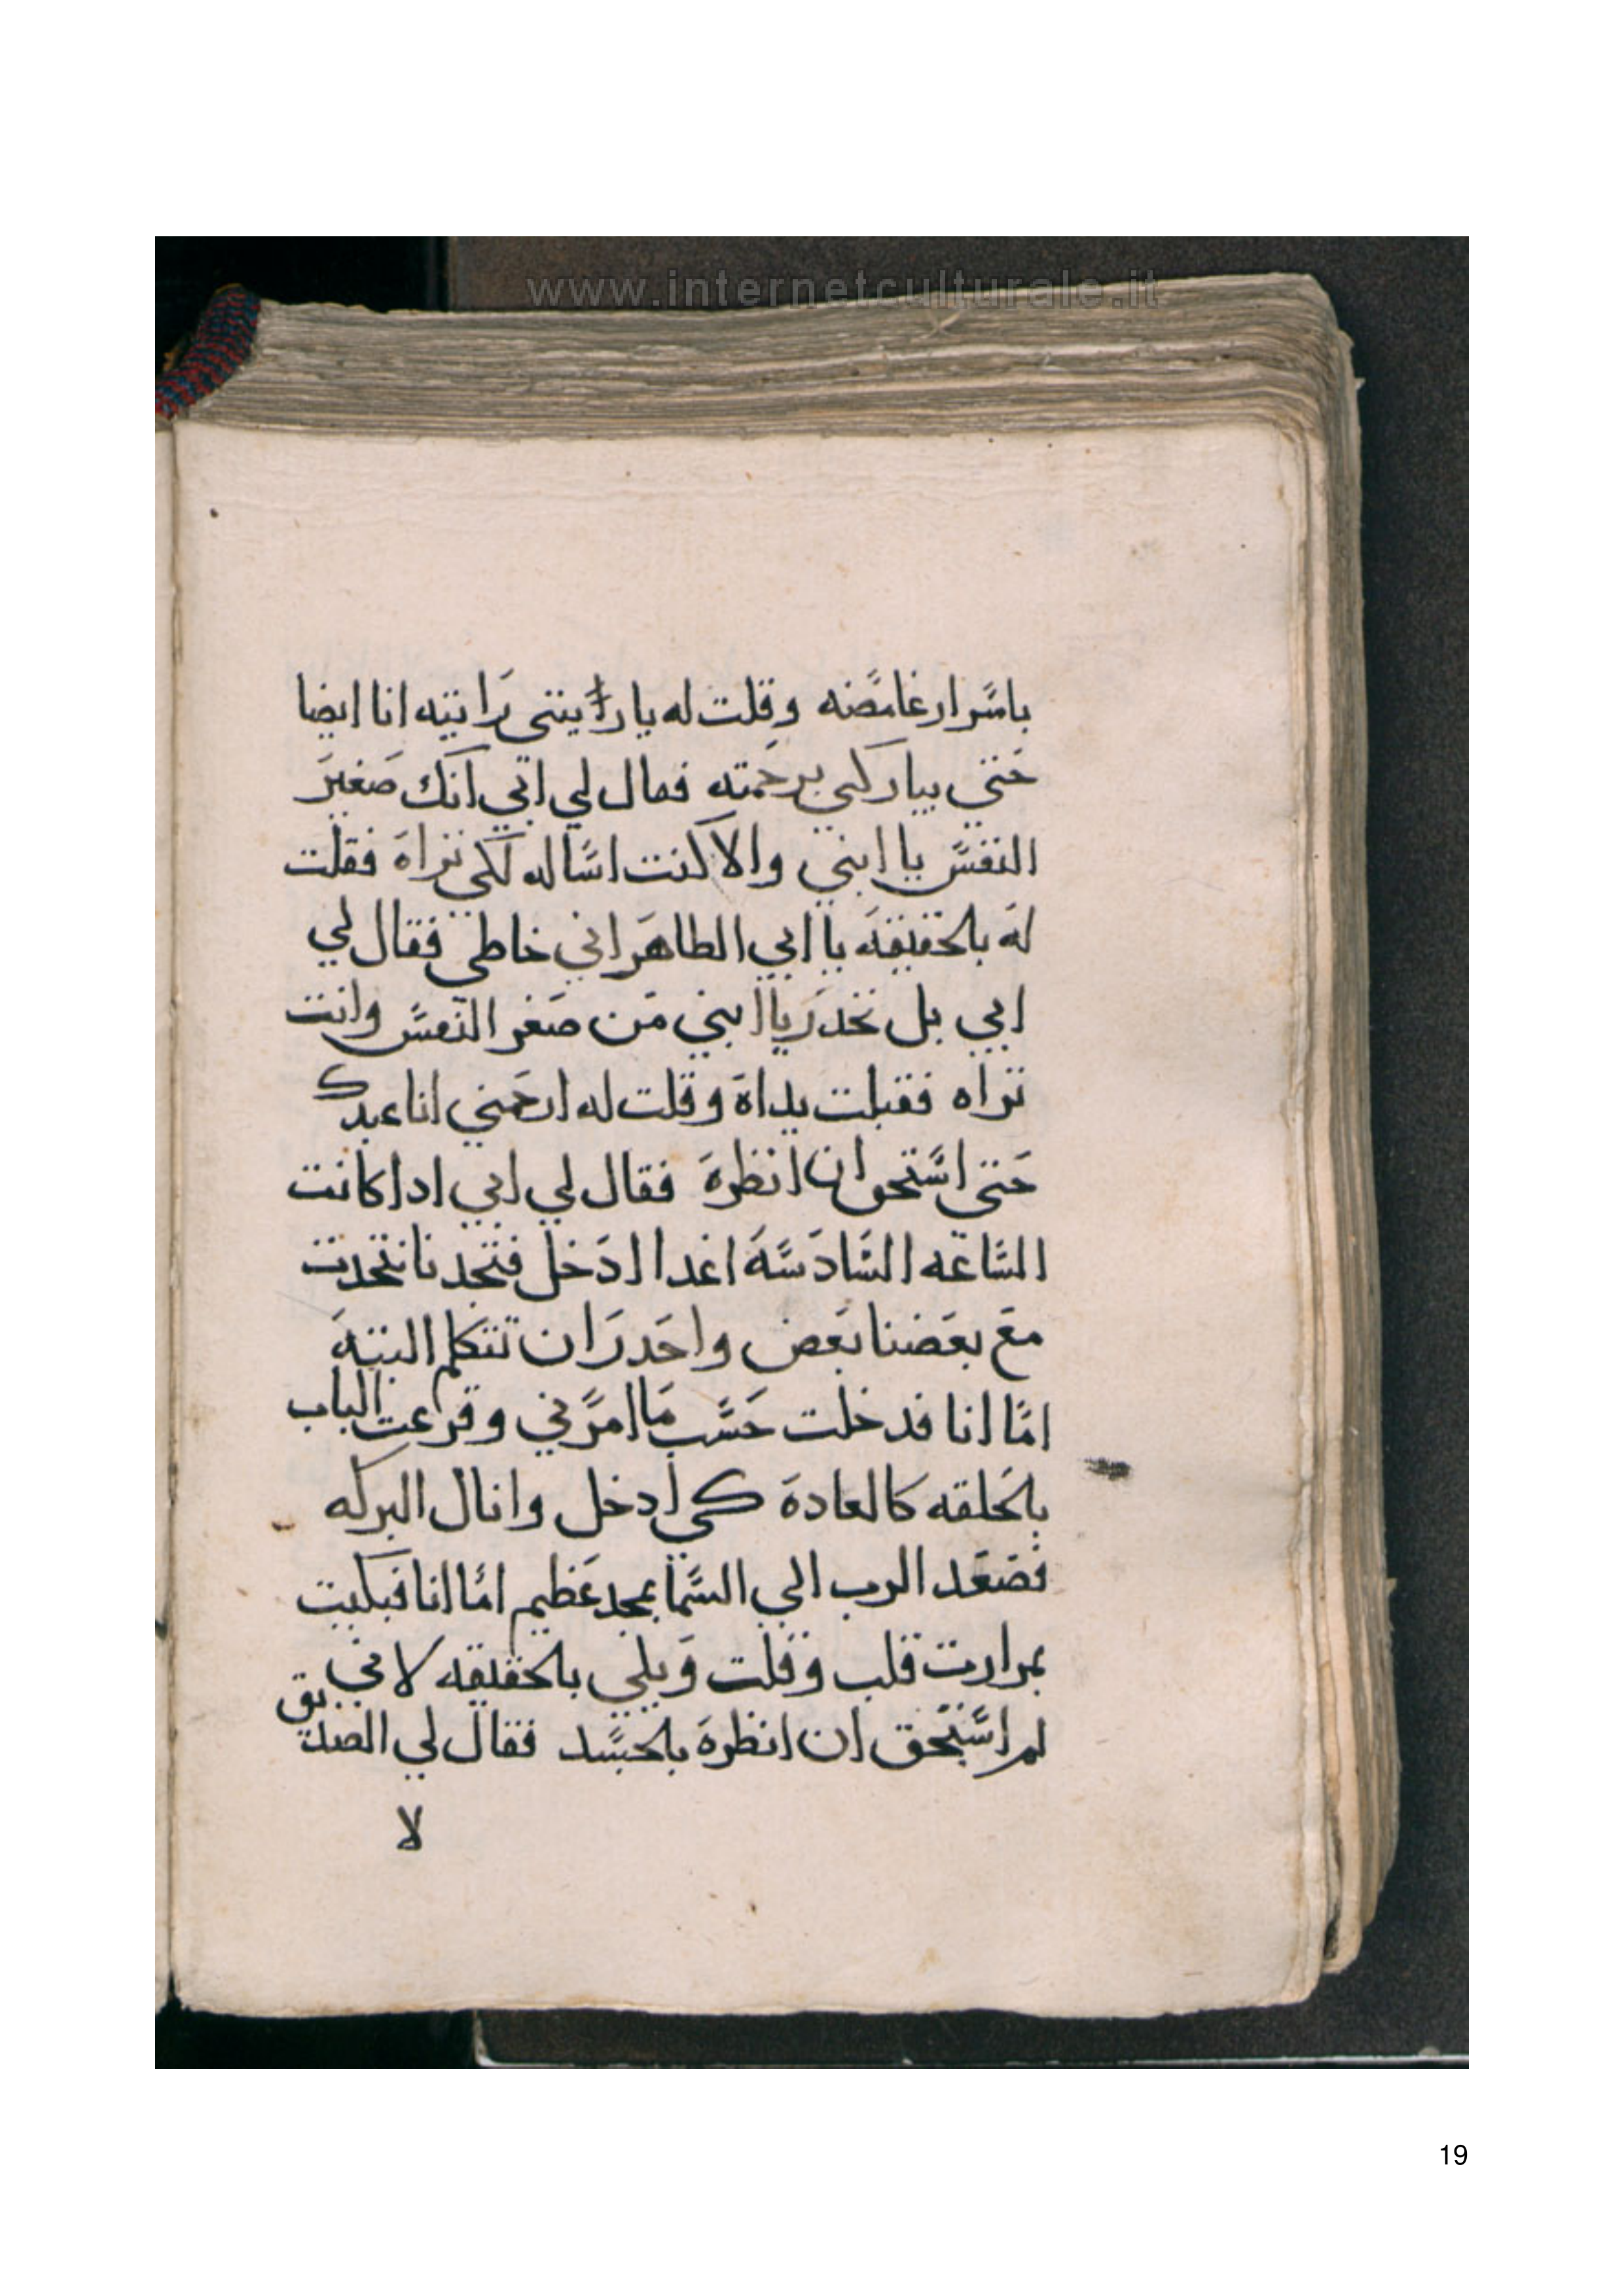 www.internetculturale.it
باسرار غامضه وقلت له يا رايتني رايته انا ايضا
حتي يباركني برحمته فقال لي ابي انك صغير
النفس يا ابني والا كنت اساله لكي تراه فقلت
له بالحقيقه يا ابي الطاهر اني خاطي فقال لي
ابي بل تحدر يا ابني من صغر النفس وانت
تراه فقبلت يداه وقلت له ارحمني انا عبدك
حتي استحق ان انظره فقال لي ابي ادا كانت
الساعه السادسه اغدا ادخل فتجدنا نتحدت
مع بعضنا بعض واحدر ان تتكلم البته
اما انا فدخلت حسب ما امرني وقرعت الباب
بالحلقه كالعادة كي ادخل وانال البركه
فصعد الرب الي السما بمجد عظيم اما انا فبكيت
بمرارت قلب وقلت ويلي بالحقيقه لاني
لم استحق ان انظره بالجسد فقال لي الصديق
لا
19